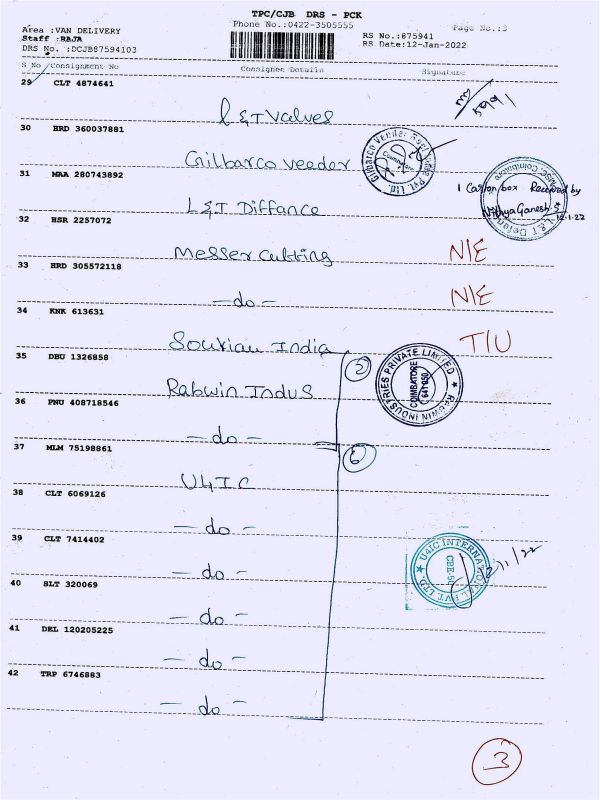 TPC/CJB DRS - PCK
Phone No.:0422-3505555
Page No.:3
Area :VAN DELIVERY
Staff :RAJA
DRS No. :DCJB87594103
RS No.:875941
RS Date:12-Jan-2022
S No Consignment No Consignee Details Signature
29 CLT 4874641
L&T Valves
5991
30 HRD 360037881
Gilbarco Veeder
Gilbarco Veeder Pvt. Ltd.
Coimbatore
31 MAA 280743892
L&T Diffance
1 Carton box Received by
Nithya Ganesh
12-1-22
32 HSR 2257072
Messer Cutting N/E
33 HRD 305572118
- do - N/E
34 KNK 613631
Souriau India T/U
35 DBU 1326858
Rabwin Indus
2
RABWIN INDUSTRIES PRIVATE LIMITED
COIMBATORE
641 050
36 PNU 408718546
- do -
37 MLM 75198861
U4IC
6
38 CLT 6069126
- do -
39 CLT 7414402
- do -
U4IC INTERNATIONAL PVT. LTD.
40 SLT 320069
- do -
41 DEL 120205225
- do -
42 TRP 6746883
- do -
3